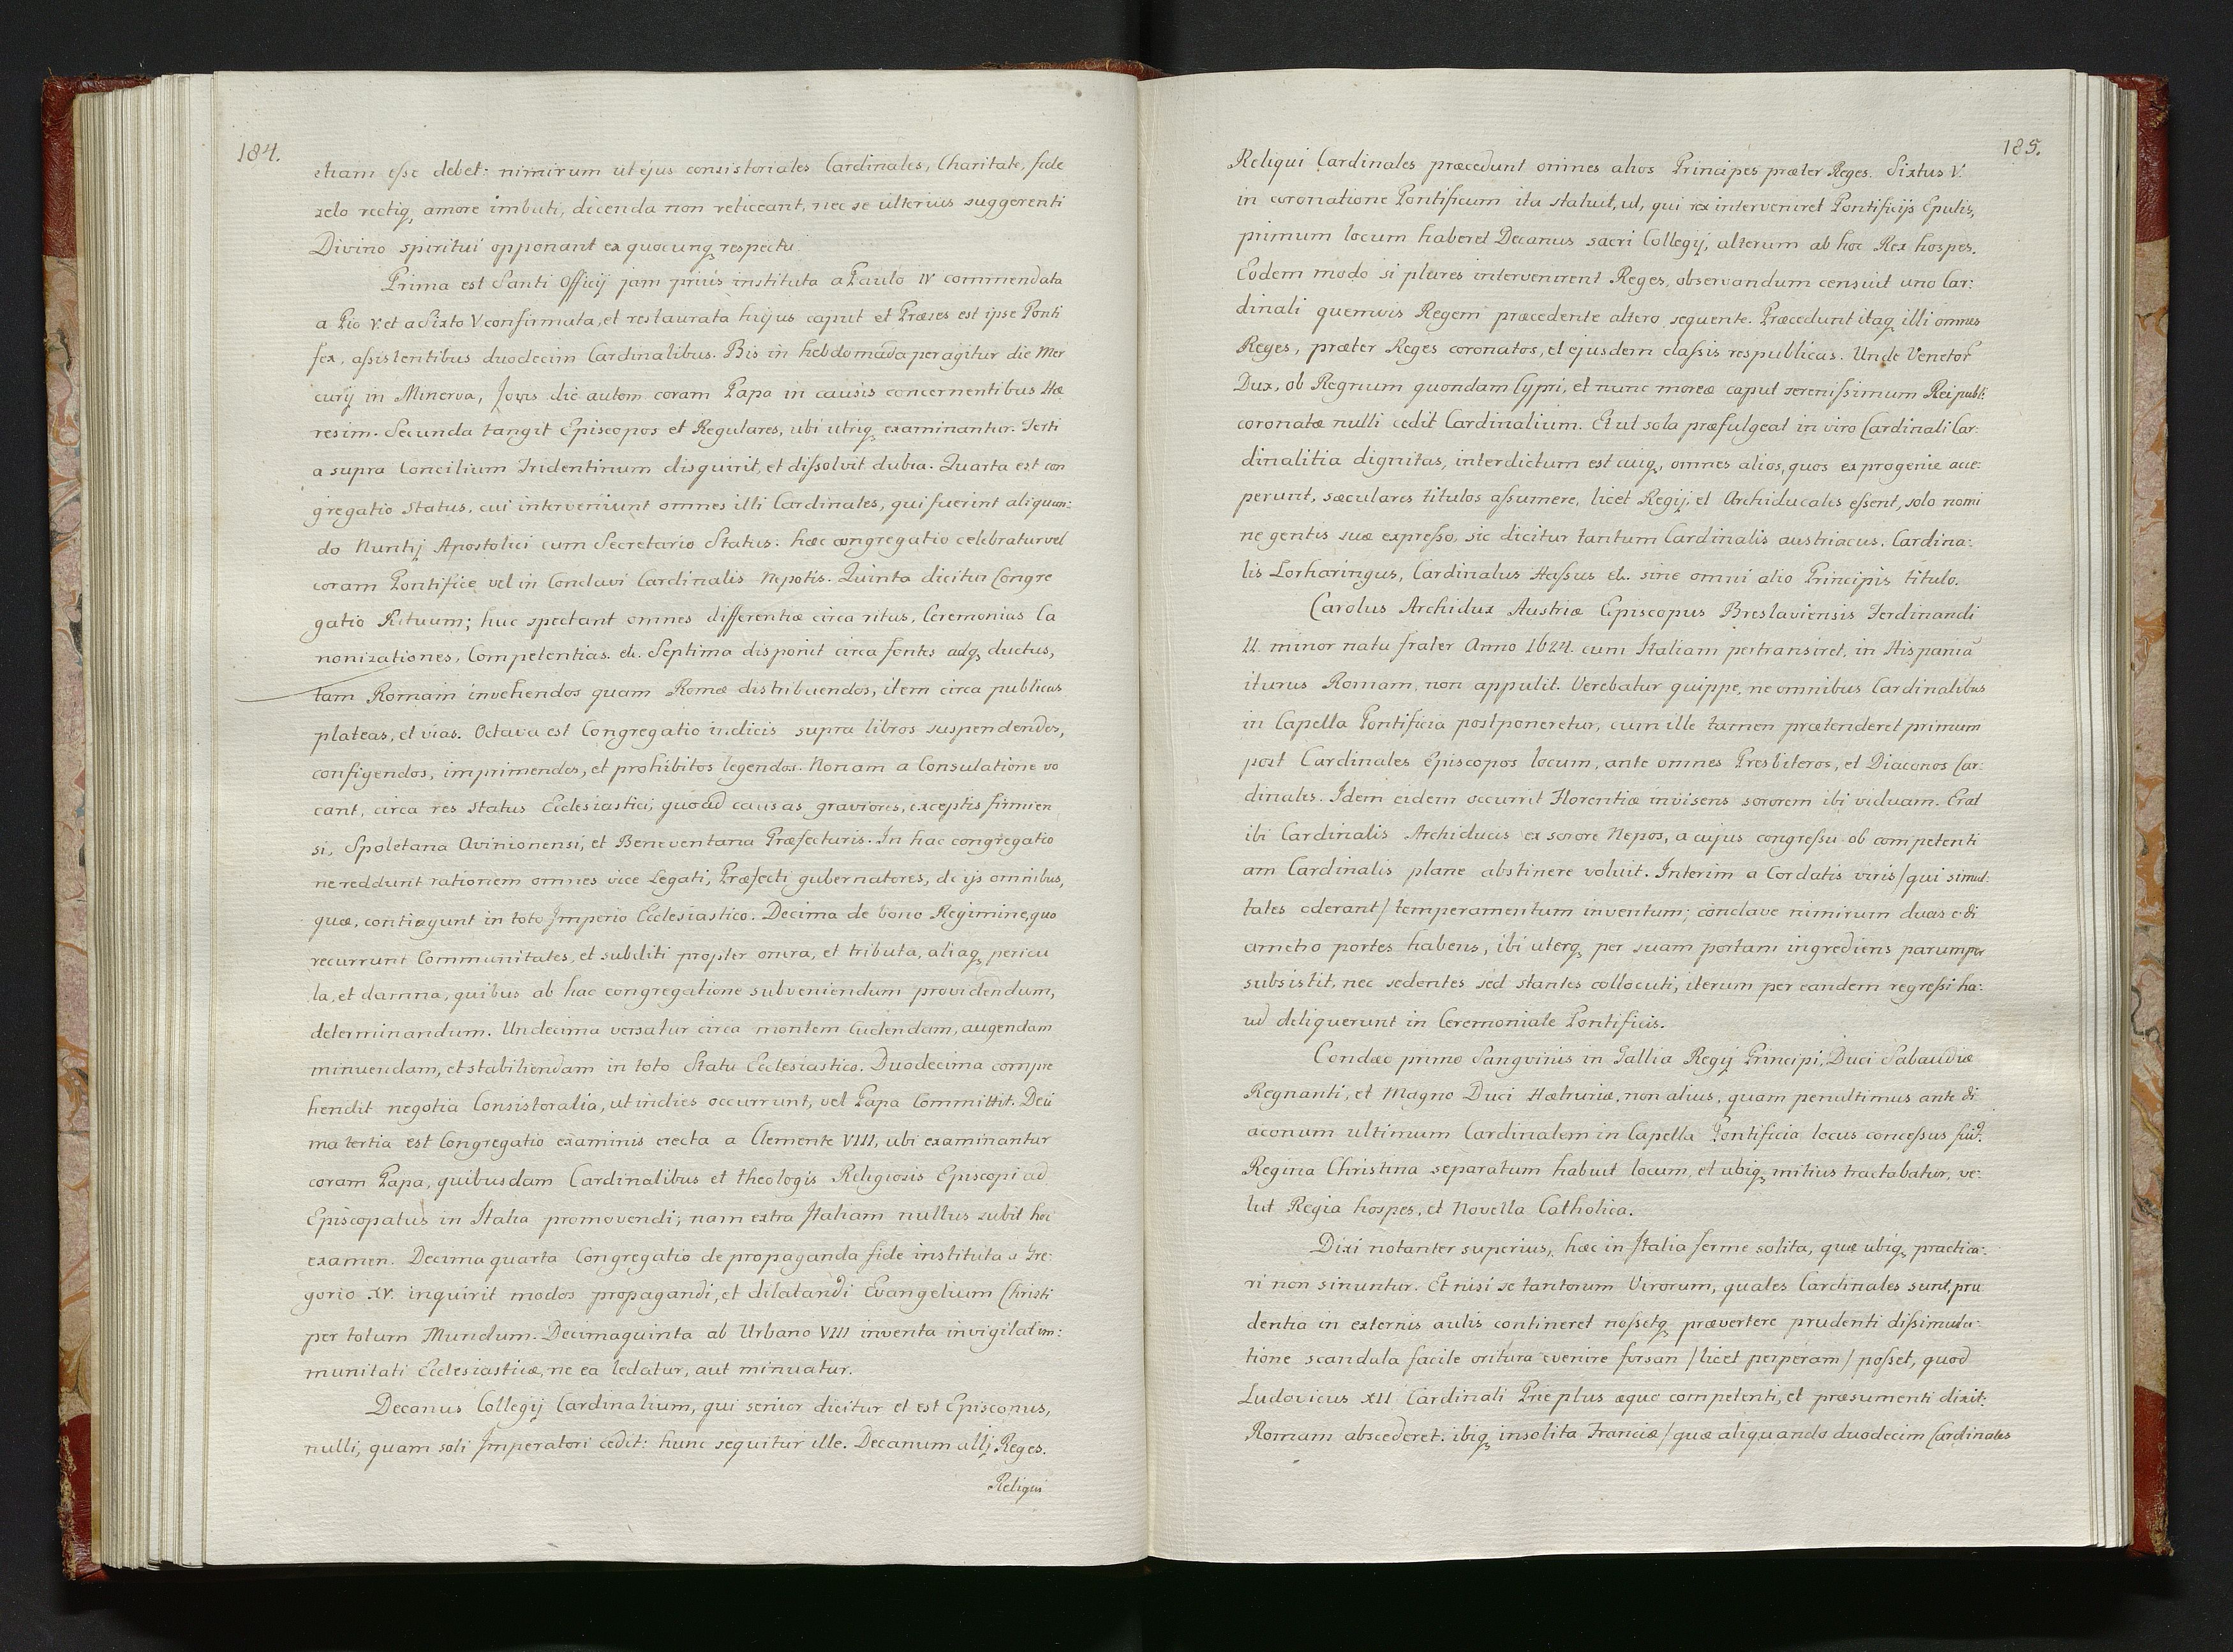 184.
etiam esse debet: nimirum ut ejus consistoriales Cardinales, Charitate, fide
zelo rectiq, amore imbuti, dicenda non reticeant, nec se ulterius suggerenti
Divino spiritui opponant ex quocunq respectu
Prima est Santi Officij jam prius instituta a Paulo IV commendata
a Pio V. et a Sixto V confirmata, et restaurata hujus caput et Præses est ipse Ponti
fex, assistentibus duodecim Cardinalibus. Bis in hebdomada peragitur die Mer
curij in Minerva, Jovis die autem coram Papa in causis concernentibus Hæ
resim. Secunda tangit Episcopos et Regulares, ubi utriq, examinantur. Terti
a supra Concilium Tridentinum disquirit, et dissolvit dubia. Quarta est con
gregatio status, cui interveniunt omnes illi Cardinales, qui fuerint aliquan:
do Nuntij Apostolici cum Secretario Status. hæc congregatio celebratur vel
coram Pontifice vel in Conclavi Cardinalis Nepotis. Quinta dicitur Congre
gatio Rituum; huc spectant omnes differentiæ circa ritus, Ceremonias Ca
nonizationes, Competentias. etc. Septima disponit circa fontes adq, ductus,
tam Romam invehendos quam Romæ distribuendos, item circa publicas
plateas, et vias. Octava est Congregatio indicis supra libros suspendendos,
configendos, imprimendos, et prohibitos legendos. Nonam a Consulatione vo
cant, circa res status Ecclesiastici, quoad causas graviores, exceptis firmien
si, Spoletana Avinionensi, et Beneventana Præfecturis. In hac congregatio
ne reddunt rationem omnes vice Legati, Præfecti gubernatores, de ijs omnibus,
quæ, contingunt in toto Imperio Ecclesiastico. Decima de bono Regimine, quo
recurrunt Communitates, et subditi propter onera, et tributa, aliaq, pericu
la, et damna, quibus ab hac congregatione subveniendum providendum,
determinandum. Undecima versatur circa montem Cudendam, augendam
minuendam, et stabiliendam in toto Statu Ecclesiastico. Duodecima compre
hendit negotia Consistoralia, ut indies occurrunt, vel Papa Committit. Deci
ma tertia est Congregatio examinis erecta a Clemente VIII, ubi examinantur
coram Papa, quibusdam Cardinalibus et theologis Religiosis Episcopi ad
Episcopatus in Italia promovendi; nam extra Italiam nullus subit hoc
examen. Decima quarta Congregatio de propaganda fide instituta a Gre:
gorio XV. inquirit modos propagandi, et dilatandi Evangelium Christi
per totum Mundum. Decimaquinta ab Urbano VIII inventa invigilat im:
munitati Ecclesiasticæ, ne ea ledatur, aut minuatur.
Decanus Collegij Cardinalium, qui senior dicitur et est Episcopus,
nulli, quam soli Imperatori cedit: hunc sequitur ille. Decanum allj Reges.
Reliqui
185.
Reliqui Cardinales præcedunt omnes alios Principes præter Reges. Sixtus V.
in coronatione Pontificum ita statuit, ut, qui rex interveniret Pontificijs Epulis,
primum locum haberet Decanus sacri Collegij, alterum ab hoc Rex hospes.
Eodem modo si plures intervenirent Reges, observandum censuit uno Car:
dinali quemvis Regem præcedente altero sequente. Præcedunt itaq, illi omnes
Reges, præter Reges coronatos, et ejusdem classis respublicas. Unde Venetor
Dux, ob Regnum quondam Cypri, et nunc moreæ caput serenissimum Reipubl:
coronatæ nulli cedit Cardinalium. Et ut sola præfulgeat in viro Cardinali Car:
dinalitia dignitas, interdictum est cuiq, omnes alios, quos ex progenie acce:
perunt, sæculares titulos assumere, licet Regij, et Archiducales essent, solo nomi
ne gentis suæ expresso, sic dicitur tantum Cardinalis austriacus. Cardina:
lis Lorharingus, Cardinalus Hassus etc. sine omni alio Principis titulo.
Carolus Archidux Austriæ Episcopus Breslaviensis Ferdinandi
II. minor natu frater Anno 1624. cum Italiam pertransiret, in Hispania
iturus Romam, non appulit. Verebatur quippe, ne omnibus Cardinalibus
in Capella Pontificia postponeretur, cum ille tamen prætenderet primum
post Cardinales Episcopos locum, ante omnes Presbiteros, et Diaconos Car:
dinales. Idem eidem occurrit Florentiæ invisens sororem ibi viduam. Erat
ibi Cardinalis Archiducis ex sorore Nepos, a cujus congressu ob competenti
am Cardinalis plane abstinere voluit. Interim a Cordatis viris/ qui simul:
tates oderant/ temperamentum inventum; conclave nimirum duas e di
ametro portes habens, ibi uterq, per suam portam ingrediens parumper
subsistit, nec sedentes sed stantes collocuti, iterum per eandem regressi ha:
ud deliquerunt in Ceremoniale Pontificis.
Condæo primo Sangvinis in Gallia Regij Principi, Duci Sabaudiæ
Regnanti, et Magno Duci Hætruriæ, non alius, quam penultimus ante di
aconum ultimum Cardinalem in Capella Pontificia locus concessus fuit.
Regina Christina separatum habuit locum, et ubiq, mitius tractabatur, ve:
lut Regia hospes, et Novella Catholica.
Dixi notanter superius, hæc in Italia ferme solita, quæ ubiq, practica:
ri non sinuntur. Et nisi se tantorum Virorum, quales Cardinales sunt, pru
dentia in externis aulis contineret nossetq, prævertere prudenti dissimula:
tione scandula facile oritura evenire forsan /licet perperam/ posset, quod
Ludovicus XII Cardinali Prie plus æquo competenti, et præsumenti dixit:
Romam abscederet. ibiq, insolita Franciæ/ quæ aliquando duodecim Cardinales